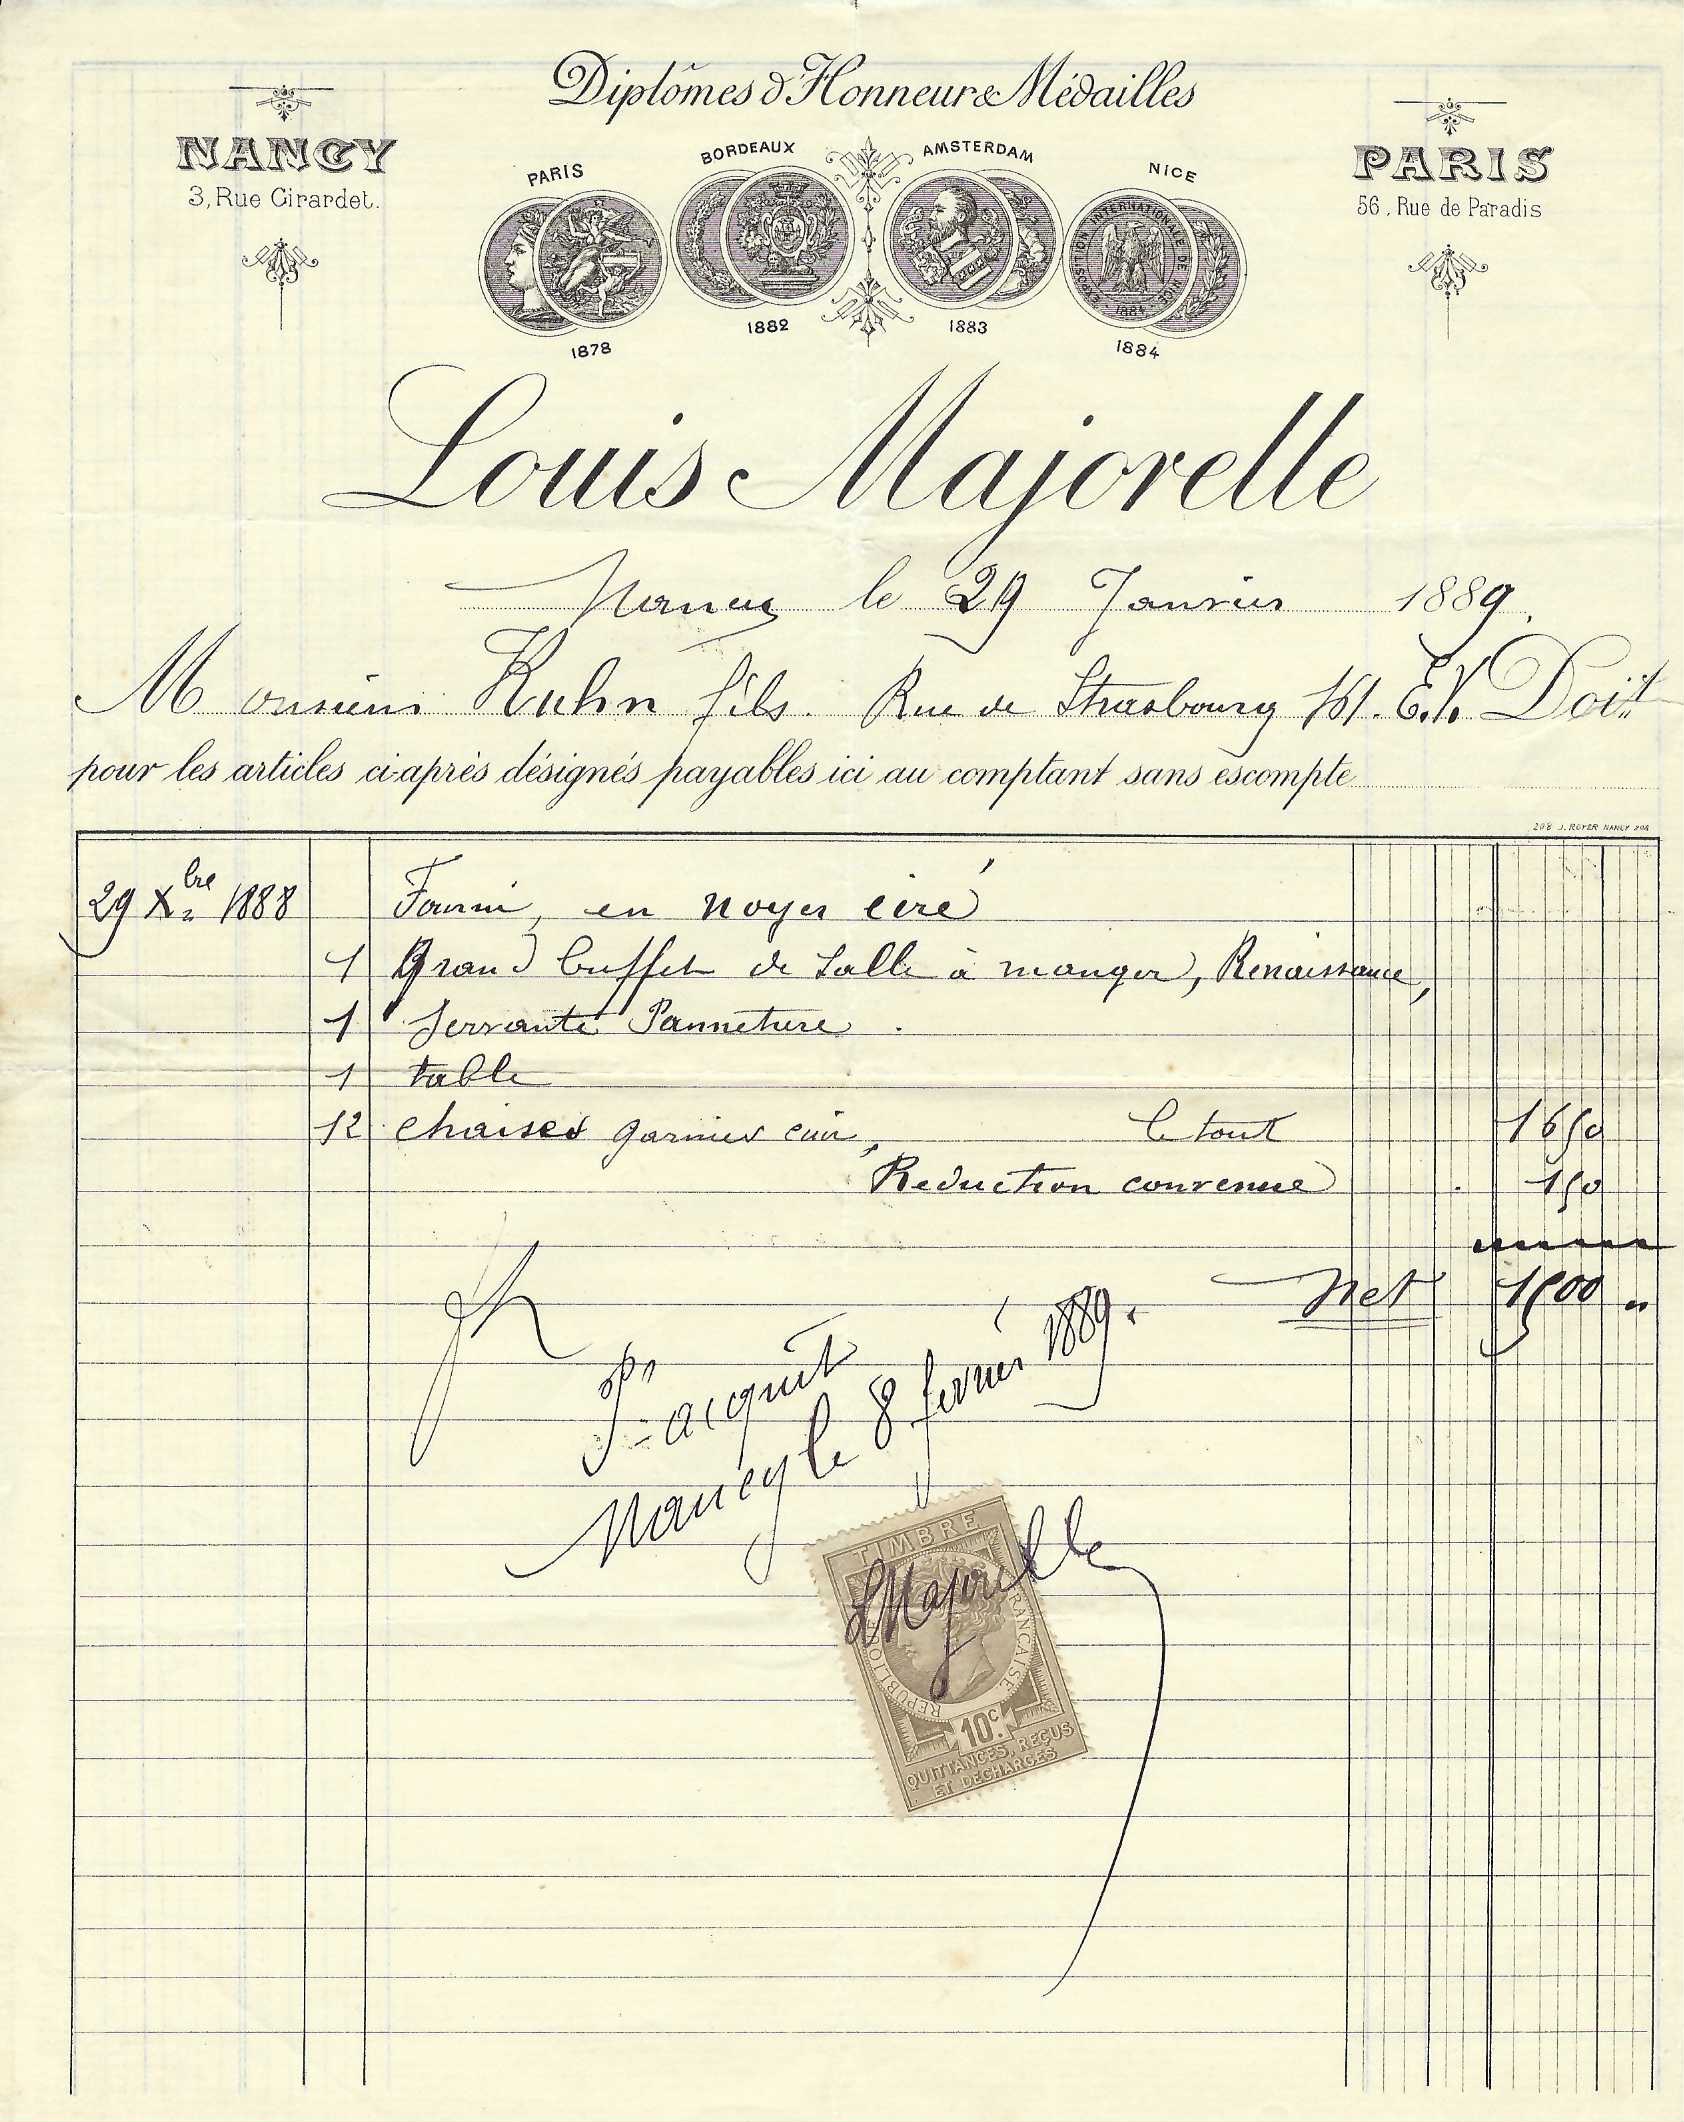 Diplômes d'Honneur & Médailles
NANCY
3, Rue Girardet.
PARIS
56, Rue de Paradis
PARIS
BORDEAUX
AMSTERDAM
NICE
EXPOSITION INTERNATIONALE DE NICE
1884
1878
1882
1883
1884
Louis Majorelle
Nancy le 29 Janvier 1889.
Monsieur Kuhn fils. Rue de Strasbourg 161. E.V. Doit
pour les articles ci-après désignés payables ici au comptant sans escompte
208 J. ROYER NANCY 208
29 Xbre 1888 Fourni, en noyer ciré
1 Grand buffet de salle à manger, Renaissance,
1 Servante Pannetière.
1 table
12 chaises garnies cuir, le tout 1650
Reduction convenue 150
Net 1500 "
Pr acquit
Nancy le 8 février 1889.
LMajorelle
TIMBRE
REPUBLIQUE FRANÇAISE
10c
QUITTANCES, REÇUS
ET DECHARGES